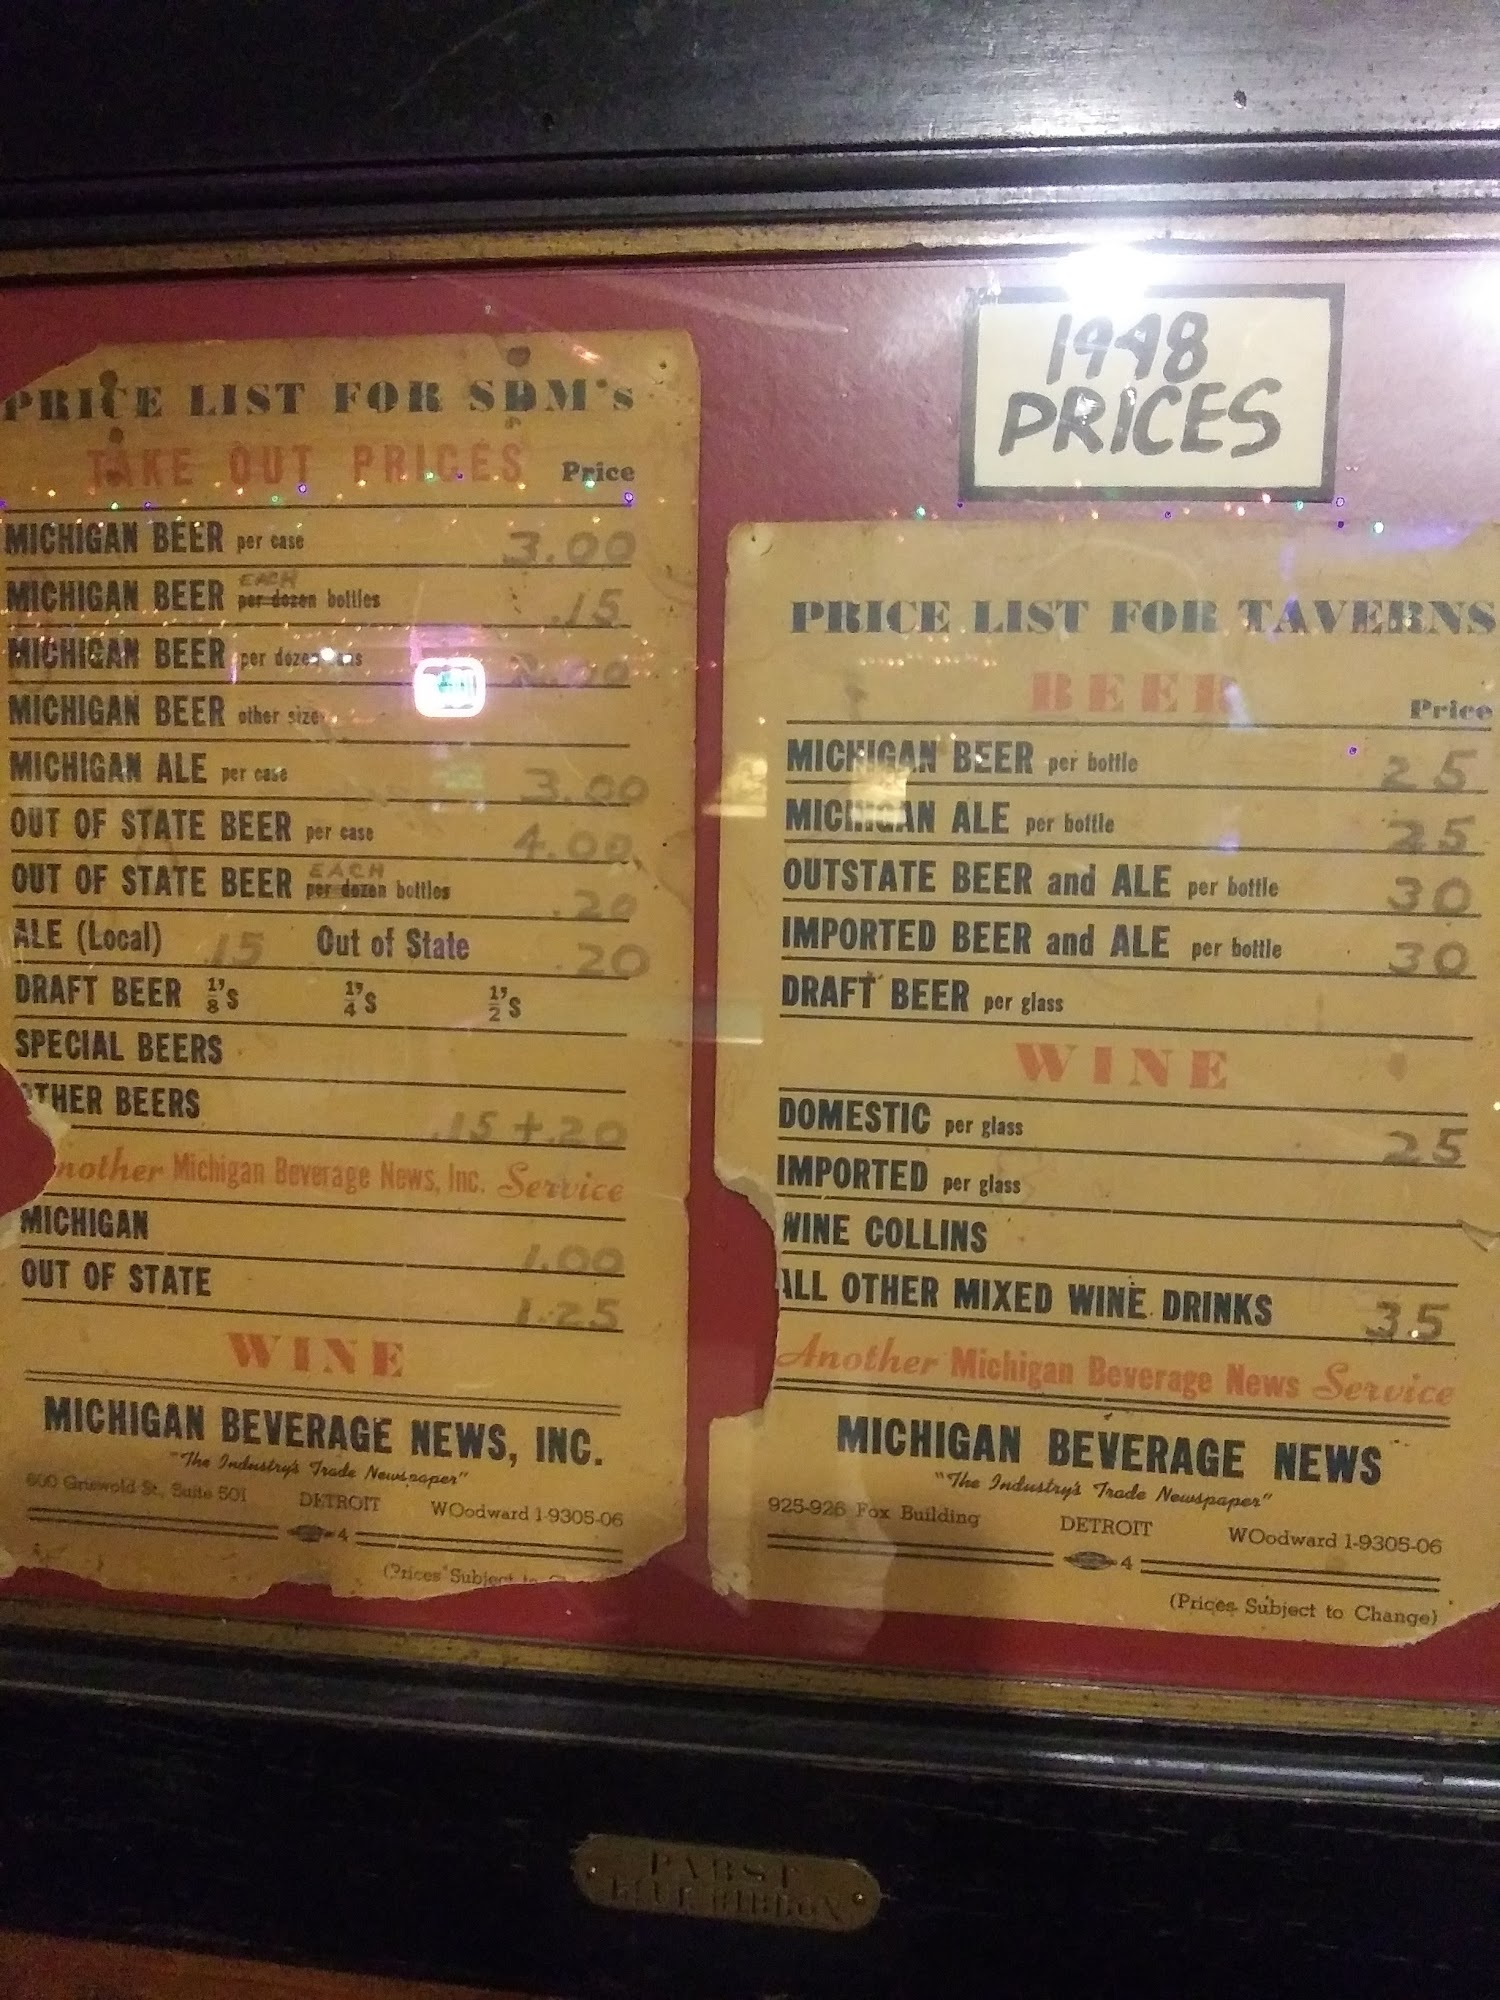 PRICE LIST FOR SDM's
TAKE OUT PRICES Price
MICHIGAN BEER per case 3.00
EACH
MICHIGAN BEER per dozen bottles .15
MICHIGAN BEER per dozen 2.00
MICHIGAN BEER other size
MICHIGAN ALE per case 3.00
OUT OF STATE BEER per case 4.00
EACH
OUT OF STATE BEER per dozen bottles .20
ALE (Local) .15 Out of State .20
DRAFT BEER 1/8's 1/4's 1/2's
SPECIAL BEERS
OTHER BEERS .15 + .20
Another Michigan Beverage News, Inc. Service
MICHIGAN 1.00
OUT OF STATE 1.25
WINE
MICHIGAN BEVERAGE NEWS, INC.
"The Industry's Trade Newspaper"
600 Griswold St., Suite 501 DETROIT WOodward 1-9305-06
4
(Prices Subject to
1948
PRICES
PRICE LIST FOR TAVERNS
BEER Price
MICHIGAN BEER per bottle 25
MICHIGAN ALE per bottle 25
OUTSTATE BEER and ALE per bottle 30
IMPORTED BEER and ALE per bottle 30
DRAFT BEER per glass
WINE
DOMESTIC per glass 25
IMPORTED per glass
WINE COLLINS
ALL OTHER MIXED WINE DRINKS 35
Another Michigan Beverage News Service
MICHIGAN BEVERAGE NEWS
"The Industry's Trade Newspaper"
925-926 Fox Building DETROIT WOodward 1-9305-06
4
(Prices Subject to Change)
PABST
BLUE RIBBON